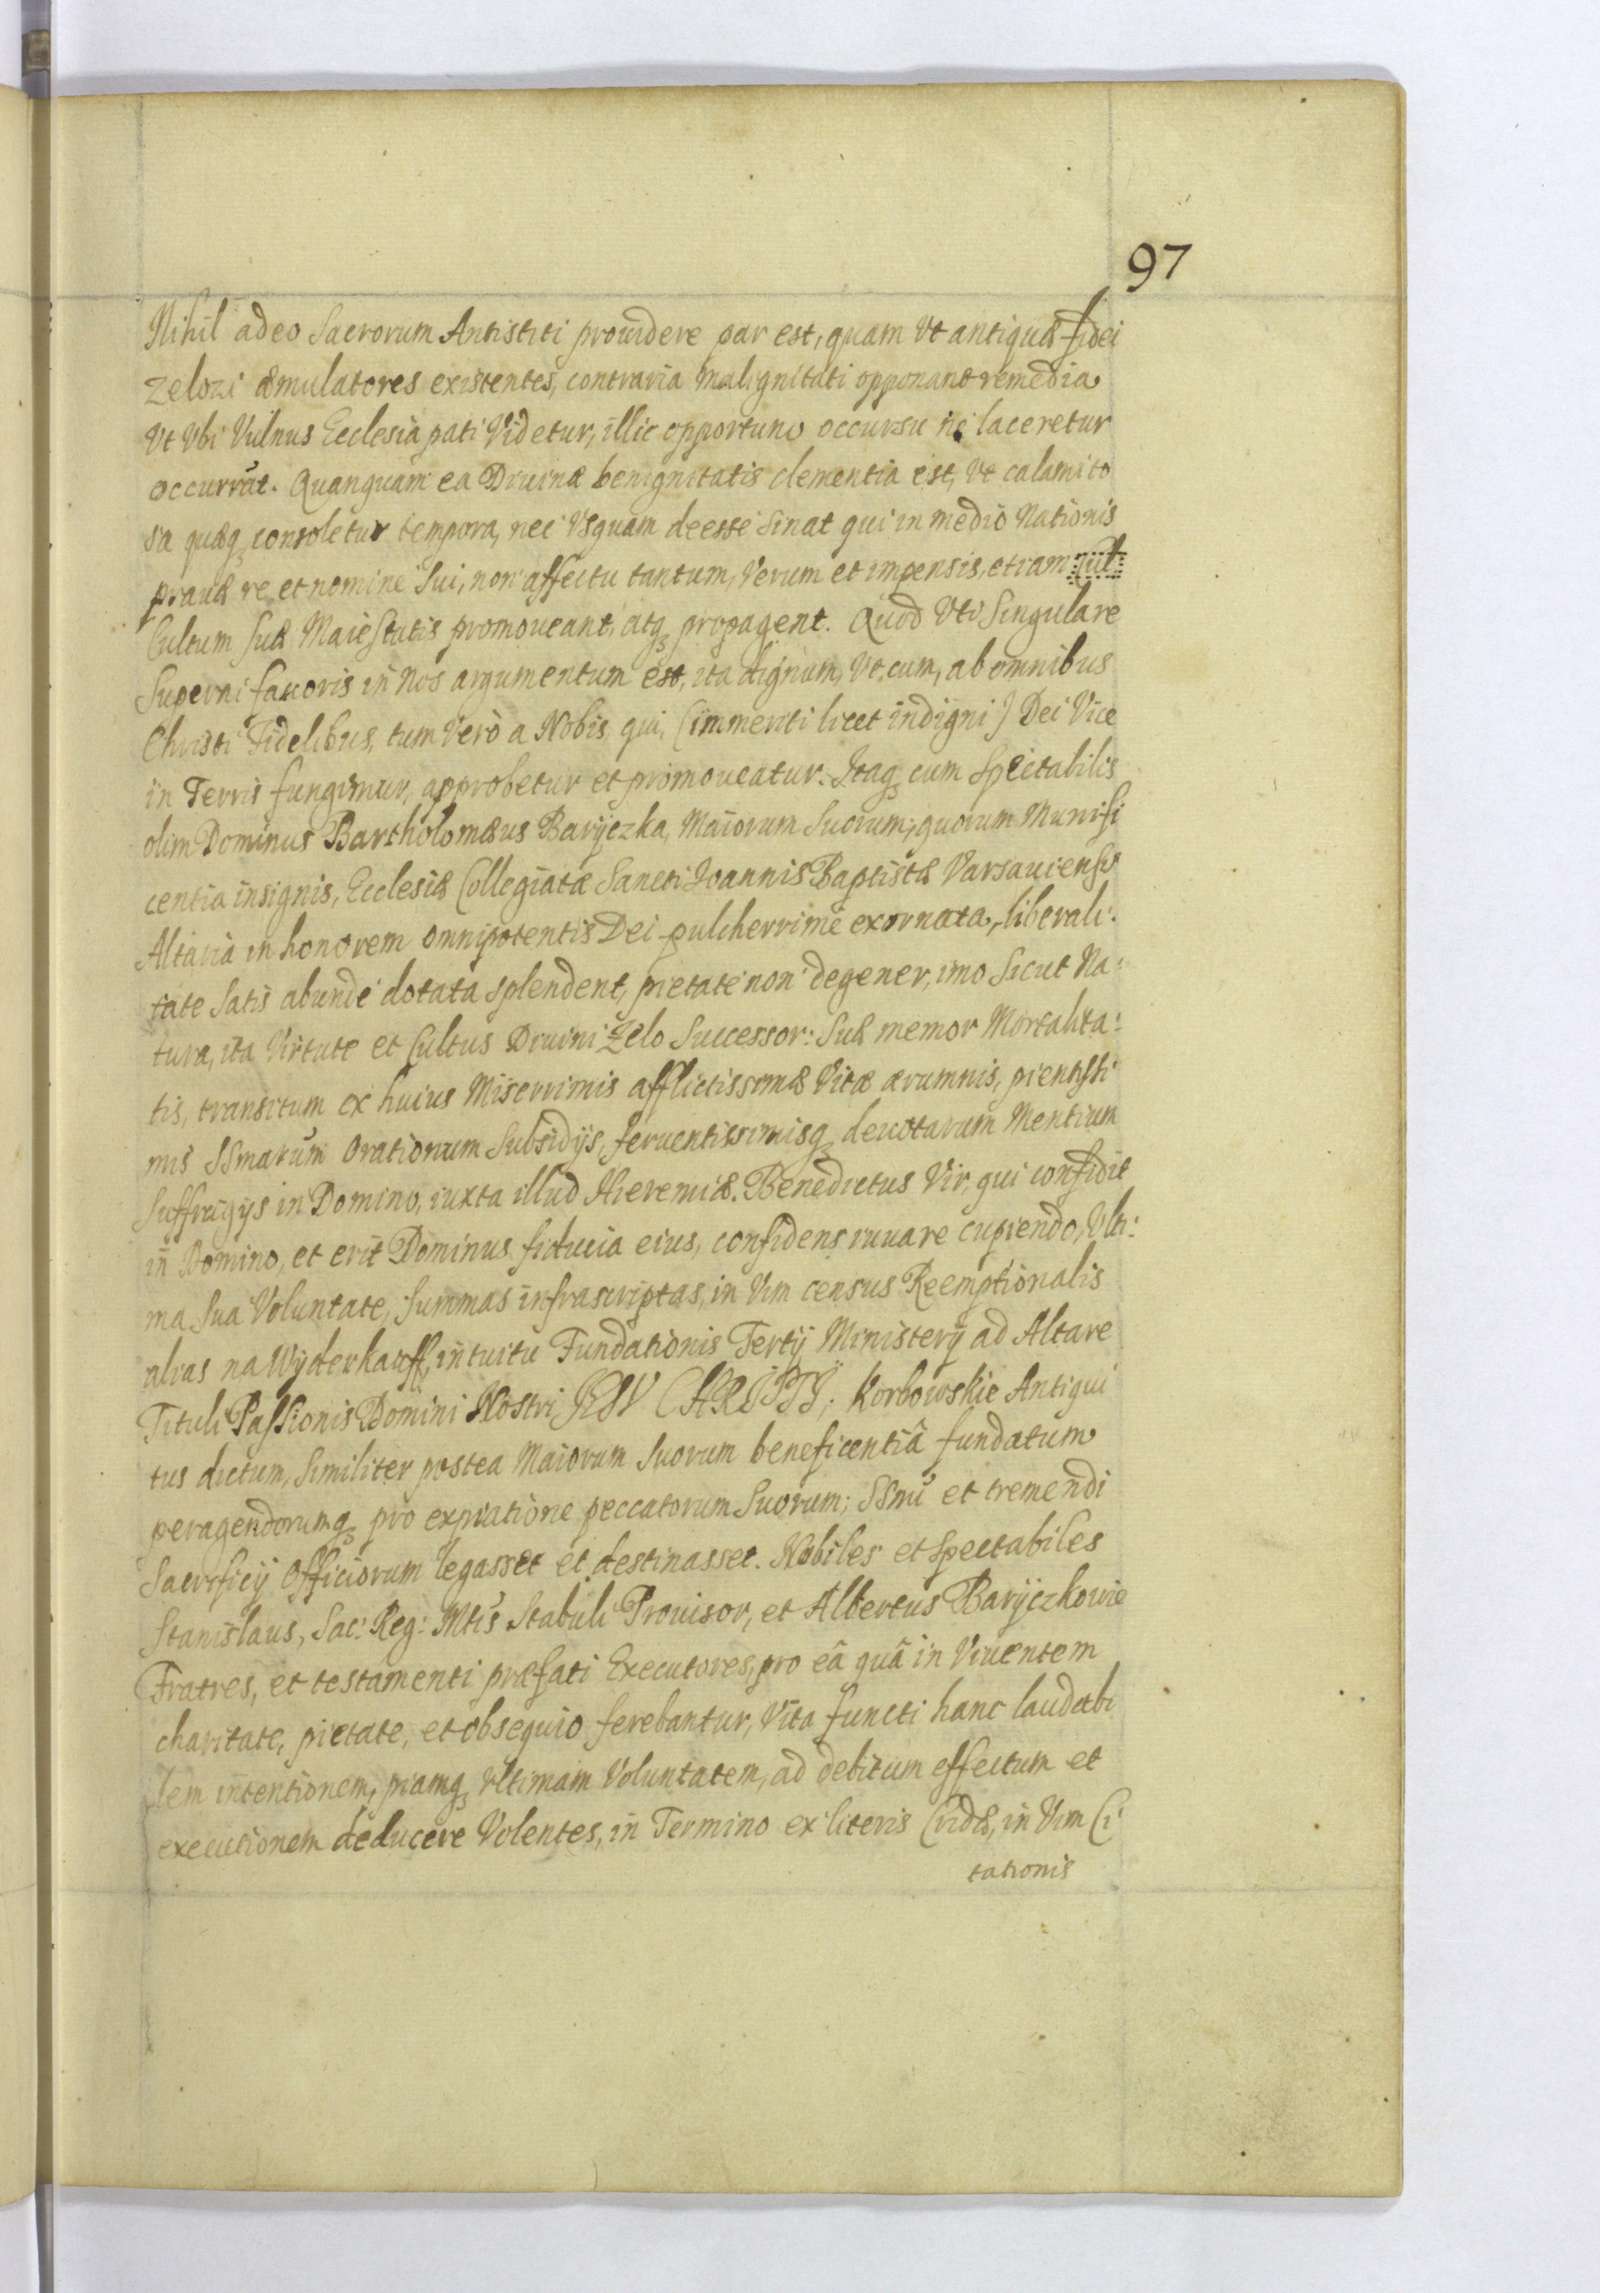 97
Nihil adeo Sacrorum Antistiti prouidere par est, quam Vt antiquæ fidei
zelozi æmulatores existentes, contraria malignitati opponant remedia
Vt Vbi Vulnus Ecclesia pati Videtur, illic opportuno occursu ne laceretur
occurrāt. Quanquam ea Diuinæ benignitatis clementia est, Vt calamito
sa quæq₃ consoletur tempora, nec Vsquam deesse Sinat qui in medio Nationis
prauæ re et nomine Sui, non affectu tantum, Verum et impensis, etiam Cul
Cultum Suæ Maiestatis promoueant, atq₃ propagent. Quod Vti Singulare
Superni fauoris in Nos argumentum est, ita dignum, Vt cum, ab omnibus
Christi Fidelibus, tum Verò a Nobis, qui, (immeriti licet indigni) Dei Vice
in Terris fungimur, approbetur et promoueatur. Itaq₃ cum Spectabilis
olim Dominus Bartholomæus Baryczka, Maiorum Suorum, quorum Munifi
centia insignis, Ecclesiæ Collegiatæ Sancti Ioannis Baptistæ Varsauiensis
Altaria in honorem omnipotentis Dei pulcherrimè exornata, liberali:
tate Satis abundè dotata splendent, pietate non degener, imo Sicut Na:
tura, ita Virtute et Cultus Diuini Zelo Successor: Suæ memor Mortalita:
tis, transitum ex huius Miserrimis afflictissimæ Vitæ ærumnis, pientissi
mis SSmarum Orationum Subsidijs, feruentissimisq₃ deuotarum Mentium
Suffragijs in Domino, iuxta illud Hieremiæ. Benedictus Vir, qui confidit
in Domino, et erit Dominus fiducia eius, confidens iuuare cupiendo, Vlti:
ma Sua Voluntate, Summas infrascriptas, in Vim census Reemptionalis
alias na Wyderkauff, intuitu Fundationis Tertij Ministerij ad Altare
Tituli Passionis Domini Nostri IESV CHRISTI, Korbowskie Antiqui
tus dictum, Similiter postea Maiorum Suorum beneficentiâ fundatum
peragendorumq₃ pro expiatione peccatorum Suorum; SSmi et tremendi
Sacrificij Officiorum legasset et destinasset. Nobiles et Spectabiles
Stanislaus, Sac: Reg: Mtis Stabuli Prouisor, et Albertus Baryczkowie
Fratres, et testamenti præfati Executores, pro eâ quâ in Viuentem
charitate, pietate, et obsequio ferebantur, Vita functi hanc laudabi
lem intentionem, piamq₃ Vltimam Voluntatem, ad debitum effectum et
executionem deducere Volentes, in Termino ex literis Cridæ, in Vim Ci
tationis